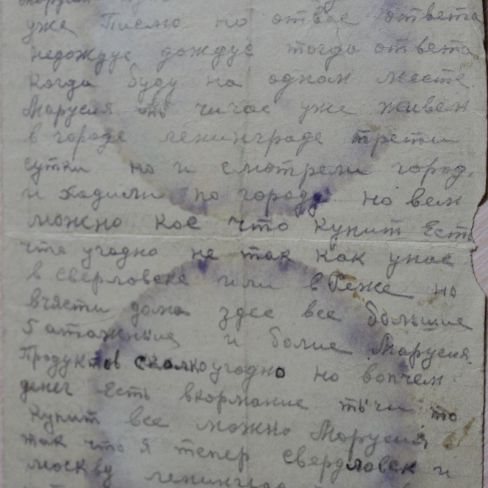 уже Писмо но отвас ответа
недождус дождус тогда ответа
когда буду на одном месте.
Маруси чичас уже живем
в городе ленинграде трети
сутки но и смотрели город,
и ходили по городу но вем
можно кое что купит Есть
что угодно не так как унас
в свердловске или в Реже но
вчасти дома здес все большие
5 атажные и болие Маруся.
Продуктов сколкоугодно но вопчем
денег Есть вкормание то
купит все можно Маруся,
так что я тепер свердловск и
москву ленинград